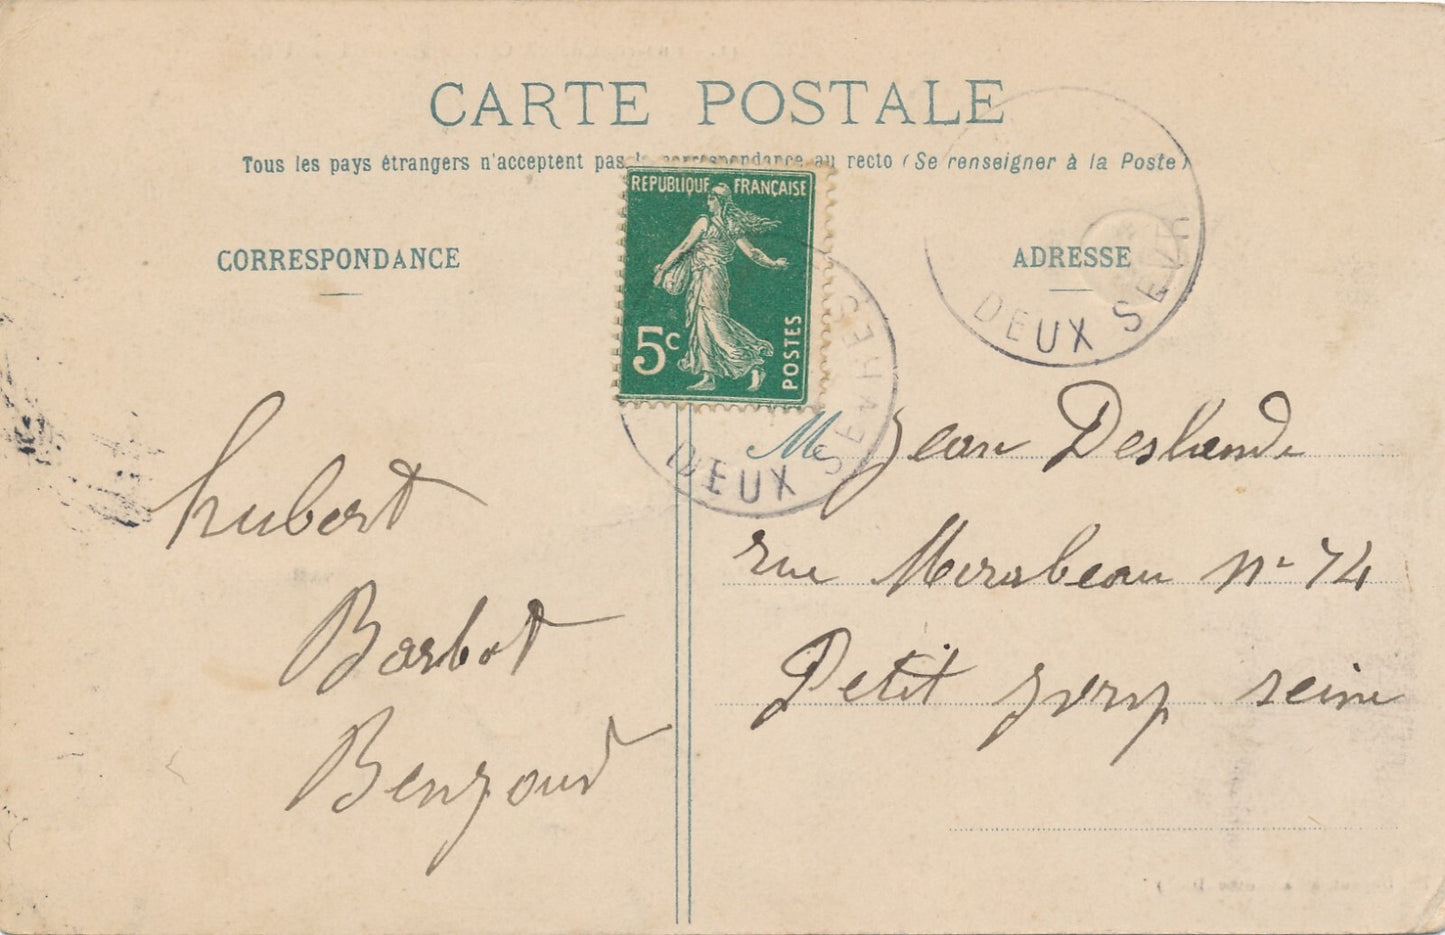 CARTE POSTALE
Tous les pays étrangers n'acceptent pas la correspondance au recto (Se renseigner à la Poste)
CORRESPONDANCE
ADRESSE
REPUBLIQUE FRANÇAISE
5c
POSTES
DEUX SEVRES
DEUX SEVRE
hubert
Barbot
M Jean Deslande
rue Mirabeau N° 74
Petit yvry seine